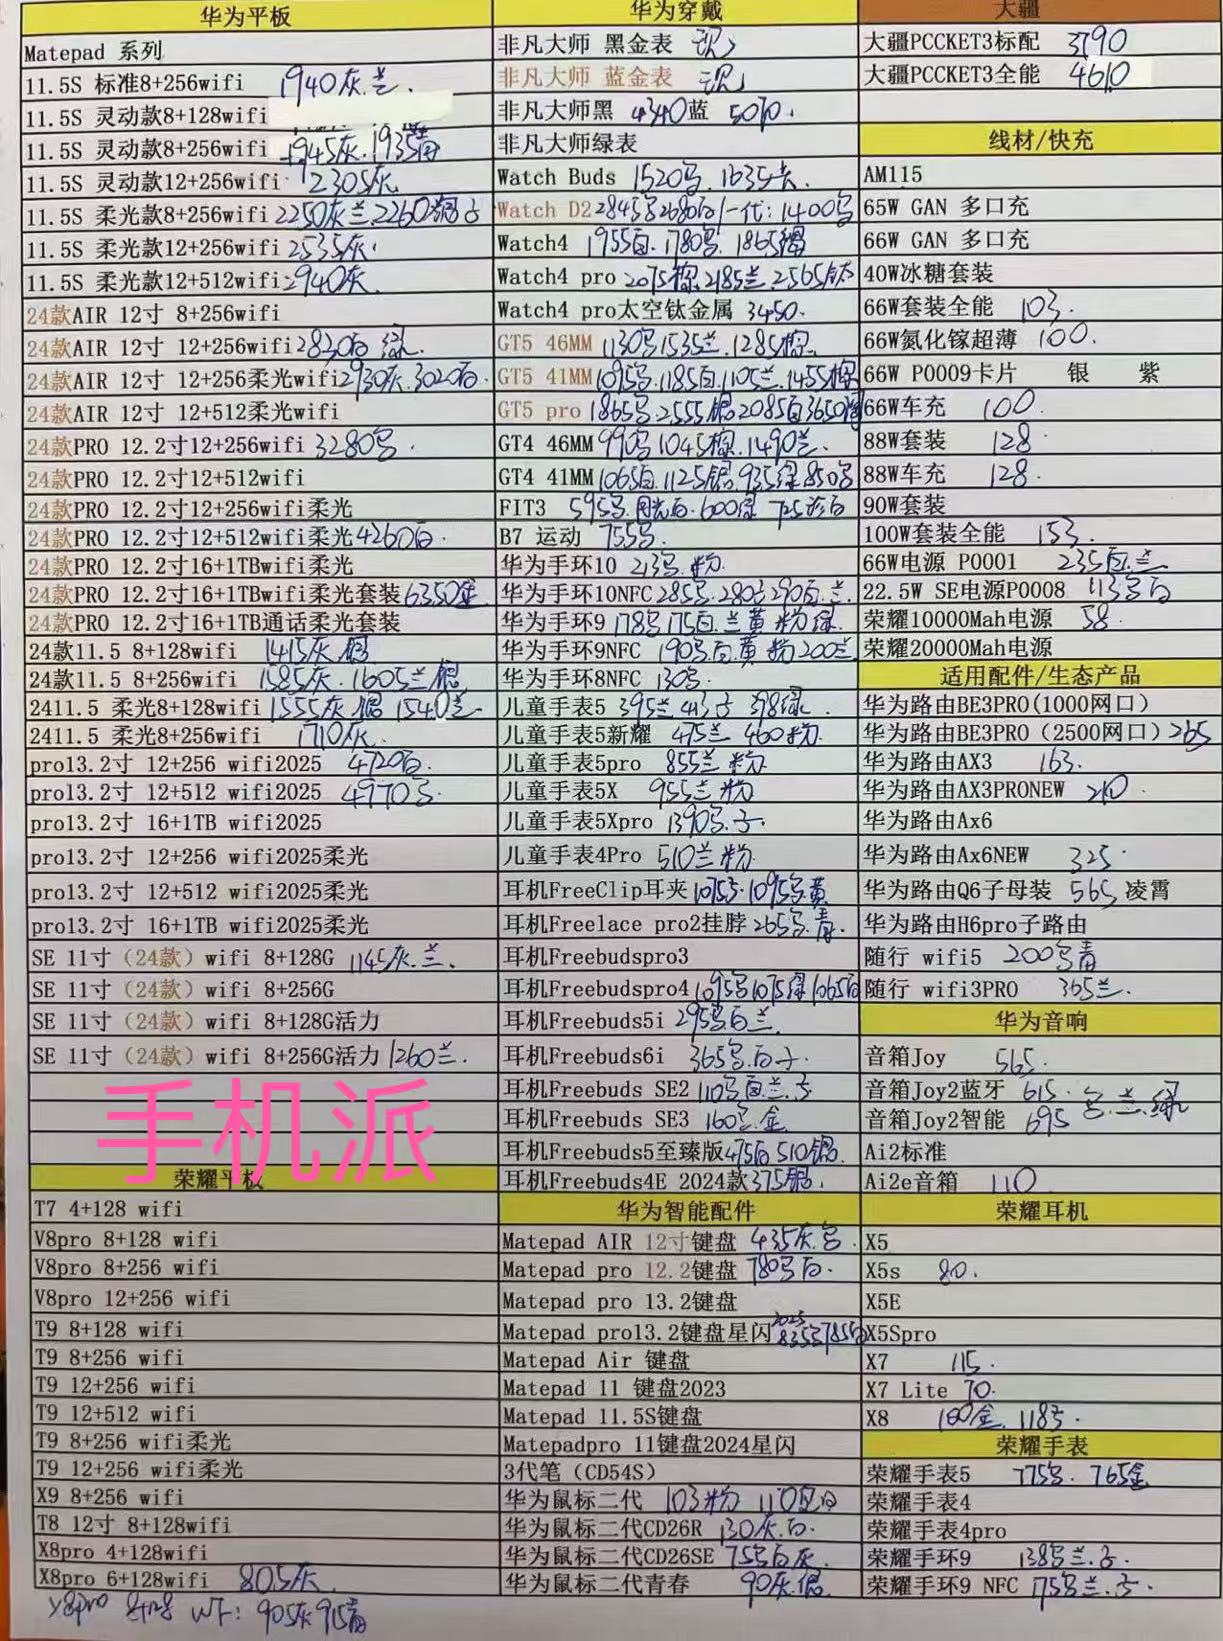 华为平板
Matepad 系列
11.5S 标准8+256wifi 1940灰.兰.
11.5S 灵动款8+128wifi
11.5S 灵动款8+256wifi 1945灰.1935青
11.5S 灵动款12+256wifi 2305灰
11.5S 柔光款8+256wifi 2250灰兰.2260
11.5S 柔光款12+256wifi 2535灰
11.5S 柔光款12+512wifi 2940灰
24款AIR 12寸 8+256wifi
24款AIR 12寸 12+256wifi 2830白 绿.
24款AIR 12寸 12+256柔光wifi 2930灰.3020白.
24款AIR 12寸 12+512柔光wifi
24款PRO 12.2寸12+256wifi 3280
24款PRO 12.2寸12+512wifi
24款PRO 12.2寸12+256wifi柔光
24款PRO 12.2寸12+512wifi柔光 4260白.
24款PRO 12.2寸16+1TBwifi柔光
24款PRO 12.2寸16+1TBwifi柔光套装 6350金
24款PRO 12.2寸16+1TB通话柔光套装
24款11.5 8+128wifi 1415灰
24款11.5 8+256wifi 1585灰.1605兰
2411.5 柔光8+128wifi 1555灰 1540兰
2411.5 柔光8+256wifi 1710灰.
pro13.2寸 12+256 wifi2025 4720白.
pro13.2寸 12+512 wifi2025 4970
pro13.2寸 16+1TB wifi2025
pro13.2寸 12+256 wifi2025柔光
pro13.2寸 12+512 wifi2025柔光
pro13.2寸 16+1TB wifi2025柔光
SE 11寸（24款）wifi 8+128G 1145灰.兰.
SE 11寸（24款）wifi 8+256G
SE 11寸（24款）wifi 8+128G活力
SE 11寸（24款）wifi 8+256G活力 1260兰.
手机派
荣耀平板
T7 4+128 wifi
V8pro 8+128 wifi
V8pro 8+256 wifi
V8pro 12+256 wifi
T9 8+128 wifi
T9 8+256 wifi
T9 12+256 wifi
T9 12+512 wifi
T9 8+256 wifi柔光
T9 12+256 wifi柔光
X9 8+256 wifi
T8 12寸 8+128wifi
X8pro 4+128wifi
X8pro 6+128wifi 805灰
X8pro 8+128 WF: 905灰915青
华为穿戴
非凡大师 黑金表 现
非凡大师 蓝金表 现
非凡大师黑 4340蓝
非凡大师绿表
Watch Buds 1520
Watch D2 2845 2680白/一代: 1400
Watch4 1955白.1780.1865
Watch4 pro 2075棕.2185兰.2565钛
Watch4 pro太空钛金属 3450.
GT5 46MM 1130 1535兰.1285棕.
GT5 41MM 1095.1185白.1105兰.1455棕
GT5 pro 1865.2555 2085白3650
GT4 46MM 990 1045棕.1490兰.
GT4 41MM 1065白.1125.935绿 850
FIT3 595 月光白.600绿 725 白
B7 运动 755
华为手环10 213.粉.
华为手环10NFC 285.280 290白.兰.
华为手环9 178 175白.兰 黄 粉 绿.
华为手环9NFC 190.白.黄 粉 200兰
华为手环8NFC 130
儿童手表5 395兰 398绿.
儿童手表5新耀 475兰 460粉.
儿童手表5pro 855兰 粉
儿童手表5X 955兰 粉
儿童手表5Xpro 1390
儿童手表4Pro 510兰 粉
耳机FreeClip耳夹 1075.1095 黄
耳机Freelace pro2挂脖 265.青.
耳机Freebudspro3
耳机Freebudspro4 1095 1075绿 1065白
耳机Freebuds5i 295 白兰.
耳机Freebuds6i 365.白
耳机Freebuds SE2 110 白兰.
耳机Freebuds SE3 160.金
耳机Freebuds5至臻版 475白 510银.
耳机Freebuds4E 2024款 375
华为智能配件
Matepad AIR 12寸键盘 435灰
Matepad pro 12.2键盘 780 白.
Matepad pro 13.2键盘
Matepad pro13.2键盘星闪 2025 835 785白
Matepad Air 键盘
Matepad 11 键盘2023
Matepad 11.5S键盘
Matepadpro 11键盘2024星闪
3代笔（CD54S）
华为鼠标二代 103粉 110
华为鼠标二代CD26R 130灰.白.
华为鼠标二代CD26SE 75 白灰.
华为鼠标二代青春 90灰.
大疆
大疆PCCKET3标配 3790
大疆PCCKET3全能 4610
线材/快充
AM115
65W GAN 多口充
66W GAN 多口充
40W冰糖套装
66W套装全能 103.
66W氮化镓超薄 100.
66W P0009卡片 银 紫
66W车充 100.
88W套装 128
88W车充 128.
90W套装
100W套装全能 153.
66W电源 P0001 235白.兰
22.5W SE电源P0008 113 白
荣耀10000Mah电源 58.
荣耀20000Mah电源
适用配件/生态产品
华为路由BE3PRO(1000网口)
华为路由BE3PRO（2500网口）265
华为路由AX3 163.
华为路由AX3PRONEW 210.
华为路由Ax6
华为路由Ax6NEW 325.
华为路由Q6子母装 565 凌霄
华为路由H6pro子路由
随行 wifi5 200 青
随行 wifi3PRO 365兰.
华为音响
音箱Joy 565.
音箱Joy2蓝牙 615.
音箱Joy2智能 695 兰.绿
Ai2标准
Ai2e音箱 110
荣耀耳机
X5
X5s 80.
X5E
X5Spro
X7 115.
X7 Lite 70.
X8 180金. 118
荣耀手表
荣耀手表5 775. 765金
荣耀手表4
荣耀手表4pro
荣耀手环9 138 兰.
荣耀手环9 NFC 175 兰.